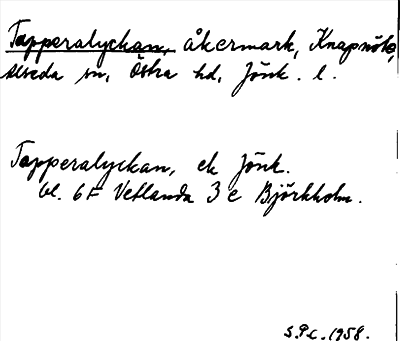 Tapperalyckan, åkermark, Knapnöte,
Alseda sn, Östra hd, Jönk. l.
Tapperalyckan, ek Jönk.
bl. 6F Vetlanda 3 e Björkholm.
S.P.C. 1958.